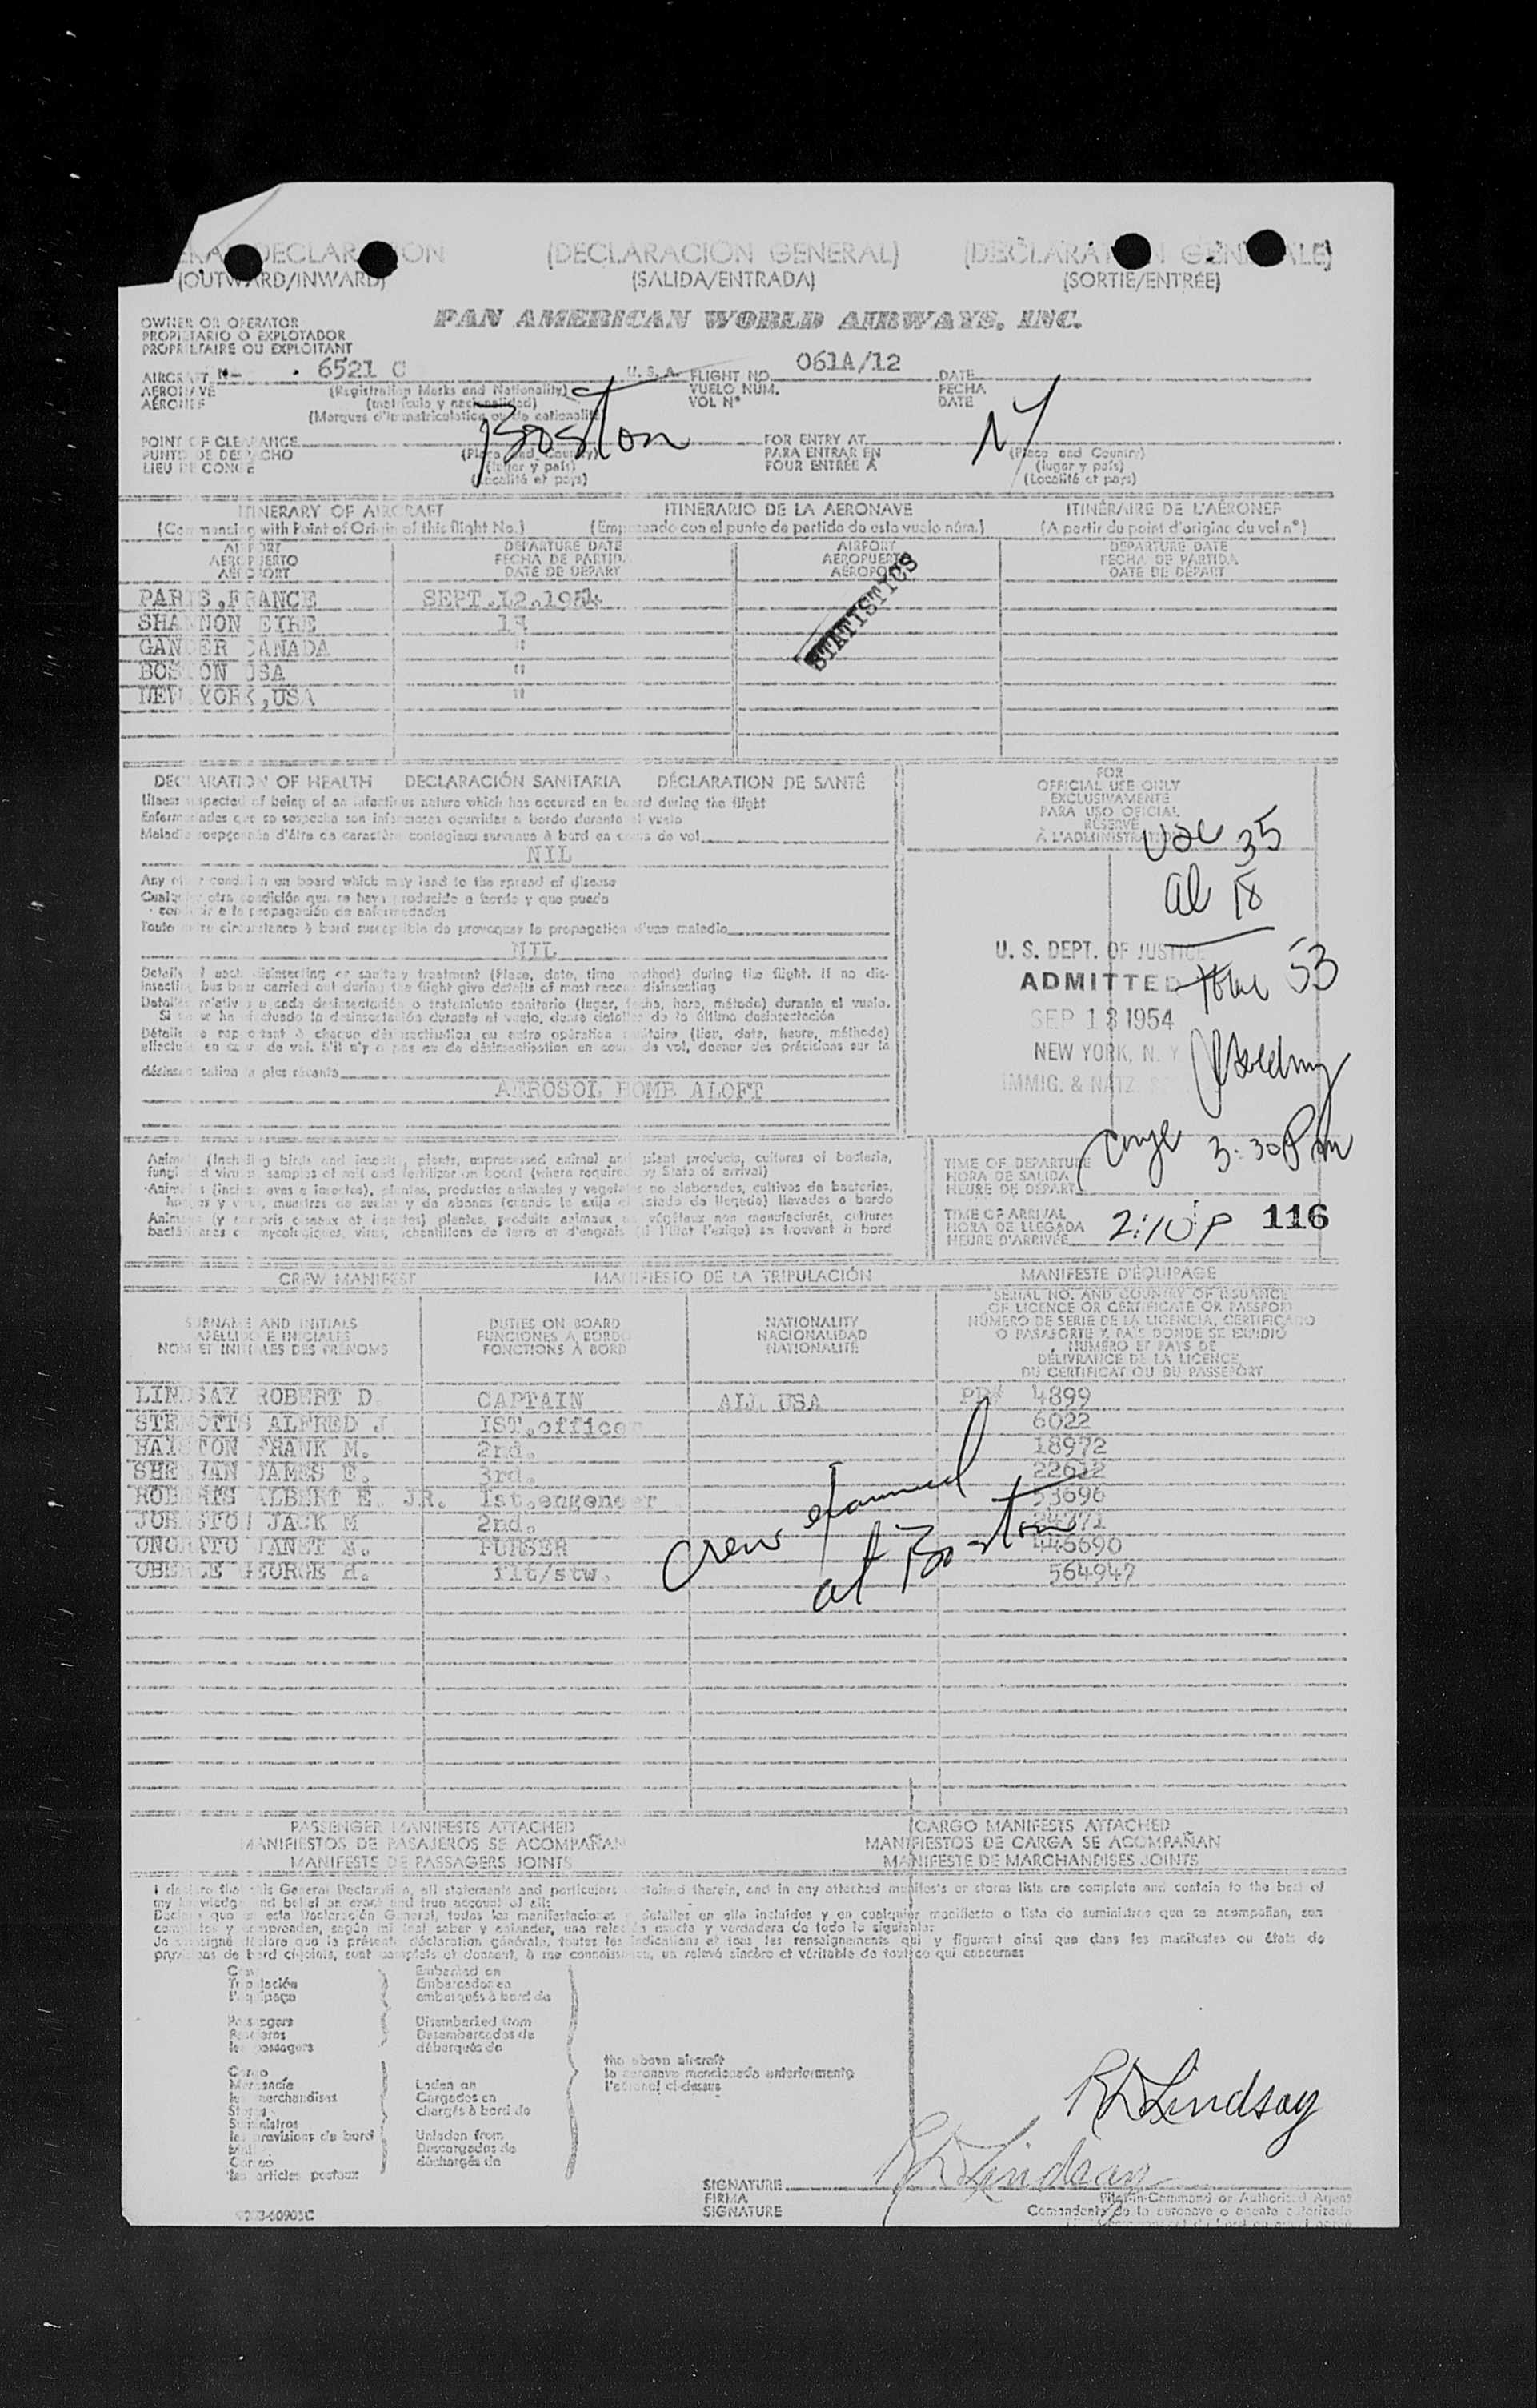 DECLARATION (DECLARACION GENERAL) (DECLARATION GENERALE)
(OUTWARD/INWARD) (SALIDA/ENTRADA) (SORTIE/ENTRÉE)
OWNER OR OPERATOR
PROPIETARIO O EXPLOTADOR
PROPRIETAIRE OU EXPLOITANT
PAN AMERICAN WORLD AIRWAYS, INC.
AIRCRAFT N- 6521 C U. S. A. FLIGHT NO. 061A/12 DATE
AERONAVE (Registration Marks and Nationality) VUELO NÚM. FECHA
AÉRONEF (matrícula y nacionalidad) VOL Nº DATE
(Marques d'immatriculation ou de nationalité)
POINT OF CLEARANCE Boston FOR ENTRY AT NY
PUNTO DE DESPACHO (Place and Country) PARA ENTRAR EN (Place and Country)
LIEU DE CONGÉ (lugar y país) POUR ENTRÉE À (lugar y país)
(Localité et pays) (Localité et pays)
ITINERARY OF AIRCRAFT ITINERARIO DE LA AERONAVE ITINÉRAIRE DE L'AÉRONEF
(Commencing with Point of Origin of this flight No.) (Empezando con el punto de partida de este vuelo núm.) (A partir du point d'origine du vol nº)
AIRPORT DEPARTURE DATE AIRPORT DEPARTURE DATE
AEROPUERTO FECHA DE PARTIDA AEROPUERTO FECHA DE PARTIDA
AÉROPORT DATE DE DÉPART AÉROPORT DATE DE DÉPART
STATISTICS
PARIS, FRANCE SEPT.12.1954
SHANNON EIRE 13
GANDER CANADA "
BOSTON USA "
NEW YORK, USA "
DECLARATION OF HEALTH DECLARACIÓN SANITARIA DÉCLARATION DE SANTÉ
Illness suspected of being of an infectious nature which has occured on board during the flight
Enfermedades que se sospecha son infecciosas ocurridas a bordo durante el vuelo
Maladie soupçonnée d'être de caractère contagieux survenue à bord en cours de vol
NIL
Any other condition on board which may lead to the spread of disease
Cualquier otra condición que se haya producido a bordo y que pueda
contribuir a la propagación de enfermedades
Toute autre circonstance à bord susceptible de provoquer la propagation d'une maladie
NIL
Details of each disinsecting or sanitary treatment (Place, date, time method) during the flight. If no dis-
insecting has been carried out during the flight give details of most recent disinsecting
Detalles relativos a cada desinsectación o tratamiento sanitario (lugar, fecha, hora, método) durante el vuelo.
Si no se ha efectuado la desinsectación durante el vuelo, dense detalles de la última desinsectación
Détails se rapportant à chaque désinsectisation ou autre opération sanitaire (lieu, date, heure, méthode)
effectuée en cours de vol. S'il n'y a pas eu de désinsectisation en cours de vol, donner des précisions sur la
désinsectisation la plus récente
AEROSOL BOMB ALOFT
FOR
OFFICIAL USE ONLY
EXCLUSIVAMENTE
PARA USO OFICIAL
RÉSERVÉ
À L'ADMINISTRATION
35
al 18
U. S. DEPT. OF JUSTICE
ADMITTED 53
SEP 13 1954
NEW YORK, N. Y.
IMMIG. & NATZ.
Animals (Including birds and insects), plants, unprocessed animal and plant products, cultures of bacteria,
fungi and virus, samples of soil and fertilizer on board (where required by State of arrival)
Animales (inclusive aves e insectos), plantas, productos animales y vegetales no elaborados, cultivos de bacterias,
hongos y virus, muestras de suelos y de abonos (cuando lo exija el Estado de llegada) llevados a bordo
Animaux (y compris oiseaux et insectes) plantes, produits animaux ou végétaux non manufacturés, cultures
bactériennes ou mycologiques, virus, échantillons de terre et d'engrais (si l'État l'exige) se trouvant à bord
TIME OF DEPARTURE 3:30 Pm
HORA DE SALIDA
HEURE DE DÉPART
TIME OF ARRIVAL
HORA DE LLEGADA 2:10 P 116
HEURE D'ARRIVÉE
CREW MANIFEST MANIFIESTO DE LA TRIPULACIÓN MANIFESTE D'ÉQUIPAGE
SURNAME AND INITIALS DUTIES ON BOARD NATIONALITY
APELLIDO E INICIALES FUNCIONES A BORDO NACIONALIDAD
NOM ET INITIALES DES PRÉNOMS FONCTIONS À BORD NATIONALITÉ
SERIAL NO. AND COUNTRY OF ISSUANCE
OF LICENCE OR CERTIFICATE OR PASSPORT
NÚMERO DE SERIE DE LA LICENCIA, CERTIFICADO
O PASAPORTE Y PAÍS DONDE SE EXPIDIÓ
NUMÉRO ET PAYS DE
DÉLIVRANCE DE LA LICENCE,
DU CERTIFICAT OU DU PASSEPORT
LINDSAY ROBERT D. CAPTAIN ALL USA PP# 4899
ALFRED J. IST.officer 6022
FRANK M. 2nd. 18972
JAMES E. 3rd. 22612
ROBERTS ALBERT E. JR. 1st.engeneer 53696
JOHNSTON JACK M 2nd.
ONORATO JANET PURSER 446690
OBERLE GEORGE H. flt/stw. 564947
crew examined
at Boston
PASSENGER MANIFESTS ATTACHED CARGO MANIFESTS ATTACHED
MANIFIESTOS DE PASAJEROS SE ACOMPAÑAN MANIFIESTOS DE CARGA SE ACOMPAÑAN
MANIFESTE DE PASSAGERS JOINTS MANIFESTE DE MARCHANDISES JOINTS
I declare that this General Declaration, all statements and particulars contained therein, and in any attached manifests or stores lists are complete and contain to the best of
my knowledge and belief an exact and true account of all:
Declaro que en esta Declaración General, todas las manifestaciones y detalles en ella incluidos y en cualquier manifiesto o lista de suministros que se acompañan, son
completos y comprenden, según mi leal saber y entender, una relación exacta y verdadera de todo lo siguiente:
Je soussigné déclare que la présente déclaration générale, toutes les indications et tous les renseignements qui y figurent ainsi que dans les manifestes ou états de
provisions de bord ci-joints, sont complets et donnent, à ma connaissance, un relevé sincère et véritable de tout ce qui concerne:
Crew Embarked on
Tripulación Embarcados en
l'équipage embarqués à bord de
Passengers Disembarked from
Pasajeros Desembarcados de
les passagers débarqués de
Cargo
Mercancía Laden on
les merchandises Cargados en
Stores chargés à bord de
Suministros
les provisions de bord Unladen from
Mail Descargados de
Correo déchargés de
les articles postaux
the above aircraft
la aeronave mencionada anteriormente
l'aéronef ci-dessus
RD Lindsay
SIGNATURE RD Lindsay
FIRMA Pilot-in-Command or Authorized Agent
SIGNATURE Comandante de la aeronave o agente autorizado